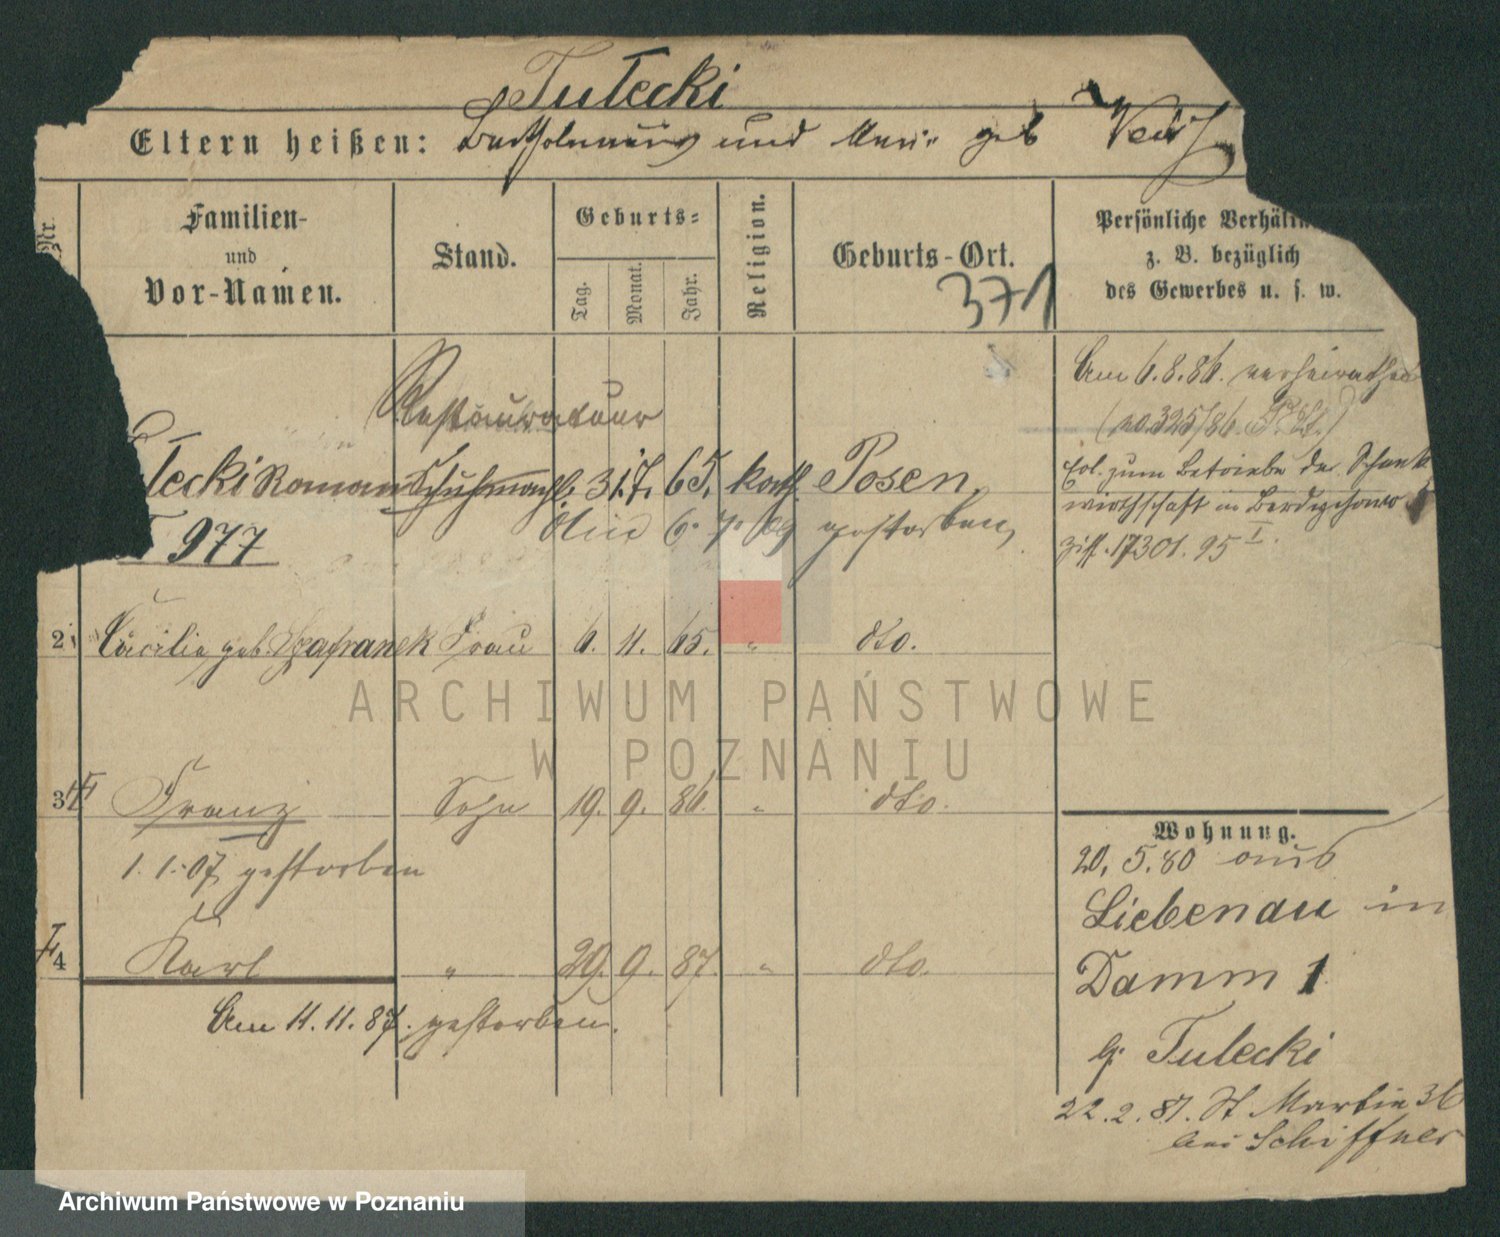 Tulecki
Eltern heißen: Bartholomäus und Marie geb
Nr.
Familien-
und
Vor-Namen.
Stand.
Geburts-
Tag.
Monat.
Jahr.
Religion.
Geburts-Ort.
371
Persönliche Verhältn
z. B. bezüglich
des Gewerbes u. s. w.
Restaurateur
lecki Roman Schuhmach. 31. 7. 65. kath. Posen.
6. 7. 09 gestorben
977
Am 6.8.86. verheirathet
(No 325/86. P. St.)
Col. zum Betriebe der Schank
wirthschaft in Berdychowo
Ziff. 17301. 95 I.
2 Cäcilie geb. Szafranek Frau 6. 11. 65. " dto.
3 Franz Sohn 19. 9. 86. " dto.
1.1.07 gestorben
4 Karl " 29. 9. 87. " dto.
Am 11.11.87. gestorben.
Wohnung.
20.5.80 aus
Liebenau in
Damm 1
b. Tulecki
22.2.87. St Martin 36
bei Schiffner
ARCHIWUM PAŃSTWOWE
W POZNANIU
Archiwum Państwowe w Poznaniu